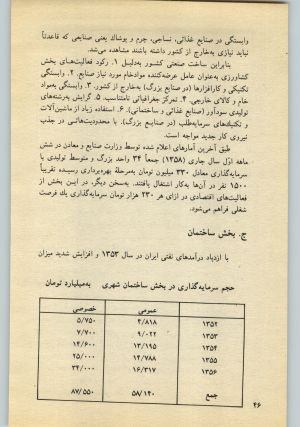 وابستگی در صنایع غذائی، نساجی، چرم و پوشاک یعنی صنایعی که قاعدتاً
نباید نیازی به‌خارج از کشور داشته باشند مشاهده می‌شود.
بنابراین ساخت صنعتی کشور به‌دلیل ۱. رکود فعالیت‌های بخش
کشاورزی به‌عنوان عامل عرضه‌کننده موادخام مورد نیاز صنایع. ۲. وابستگی
تکنیکی و کارافزارها (در صنایع بزرگ) به‌خارج از کشور. ۳. وابستگی به‌مواد
خام و کالای خارجی. ۴. تمرکز جغرافیائی نامتناسب. ۵. گرایش به‌رشته‌های
تولیدی سودآور (صنایع غذائی و ساختمانی). ۶. استفاده زیاد از ماشین‌آلات
و تکنیک‌های سرمایه‌طلب (در صنایع بزرگ). با محدودیت‌هایی در جذب
نیروی کار جدید مواجه است.
طبق آخرین آمارهای اعلام شده توسط وزارت صنایع و معادن در شش
ماهه اول سال جاری (۱۳۵۸) جمعاً ۳۴ واحد بزرگ و متوسط تولیدی با
سرمایه‌گذاری معادل ۳۳۰ میلیون تومان به‌مرحله بهره‌برداری رسیده تقریباً
۱۵۰۰ نفر در آن‌ها به‌کار اشتغال یافتند. به‌سخن دیگر، در این بخش از
فعالیت‌های اقتصادی در ازای هر ۲۳۰ هزار تومان سرمایه‌گذاری یك فرصت
شغلی فراهم می‌شود.
ج. بخش ساختمان
با ازدیاد درآمدهای نفتی ایران در سال ۱۳۵۳ و افزایش شدید میزان
حجم سرمایه‌گذاری در بخش ساختمان شهری به‌میلیارد تومان
عمومی خصوصی
۱۳۵۲ ۴/۸۱۸ ۵/۷۵۰
۱۳۵۳ ۹/۰۲۲ ۷/۷۰۰
۱۳۵۴ ۱۳/۱۹۵ ۱۴/۶۰۰
۱۳۵۵ ۱۴/۷۸۸ ۲۵/۰۰۰
۱۳۵۶ ۱۶/۳۱۷ ۳۴/۰۰۰
جمع ۵۸/۱۴۰ ۸۷/۵۵۰
۴۶